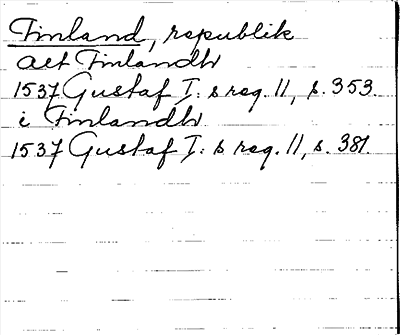 Finland, republik
alt Finlandh
1537 Gustaf I: s reg. 11, s. 353.
i Finlandh
1537 Gustaf I: s reg. 11, s. 381.